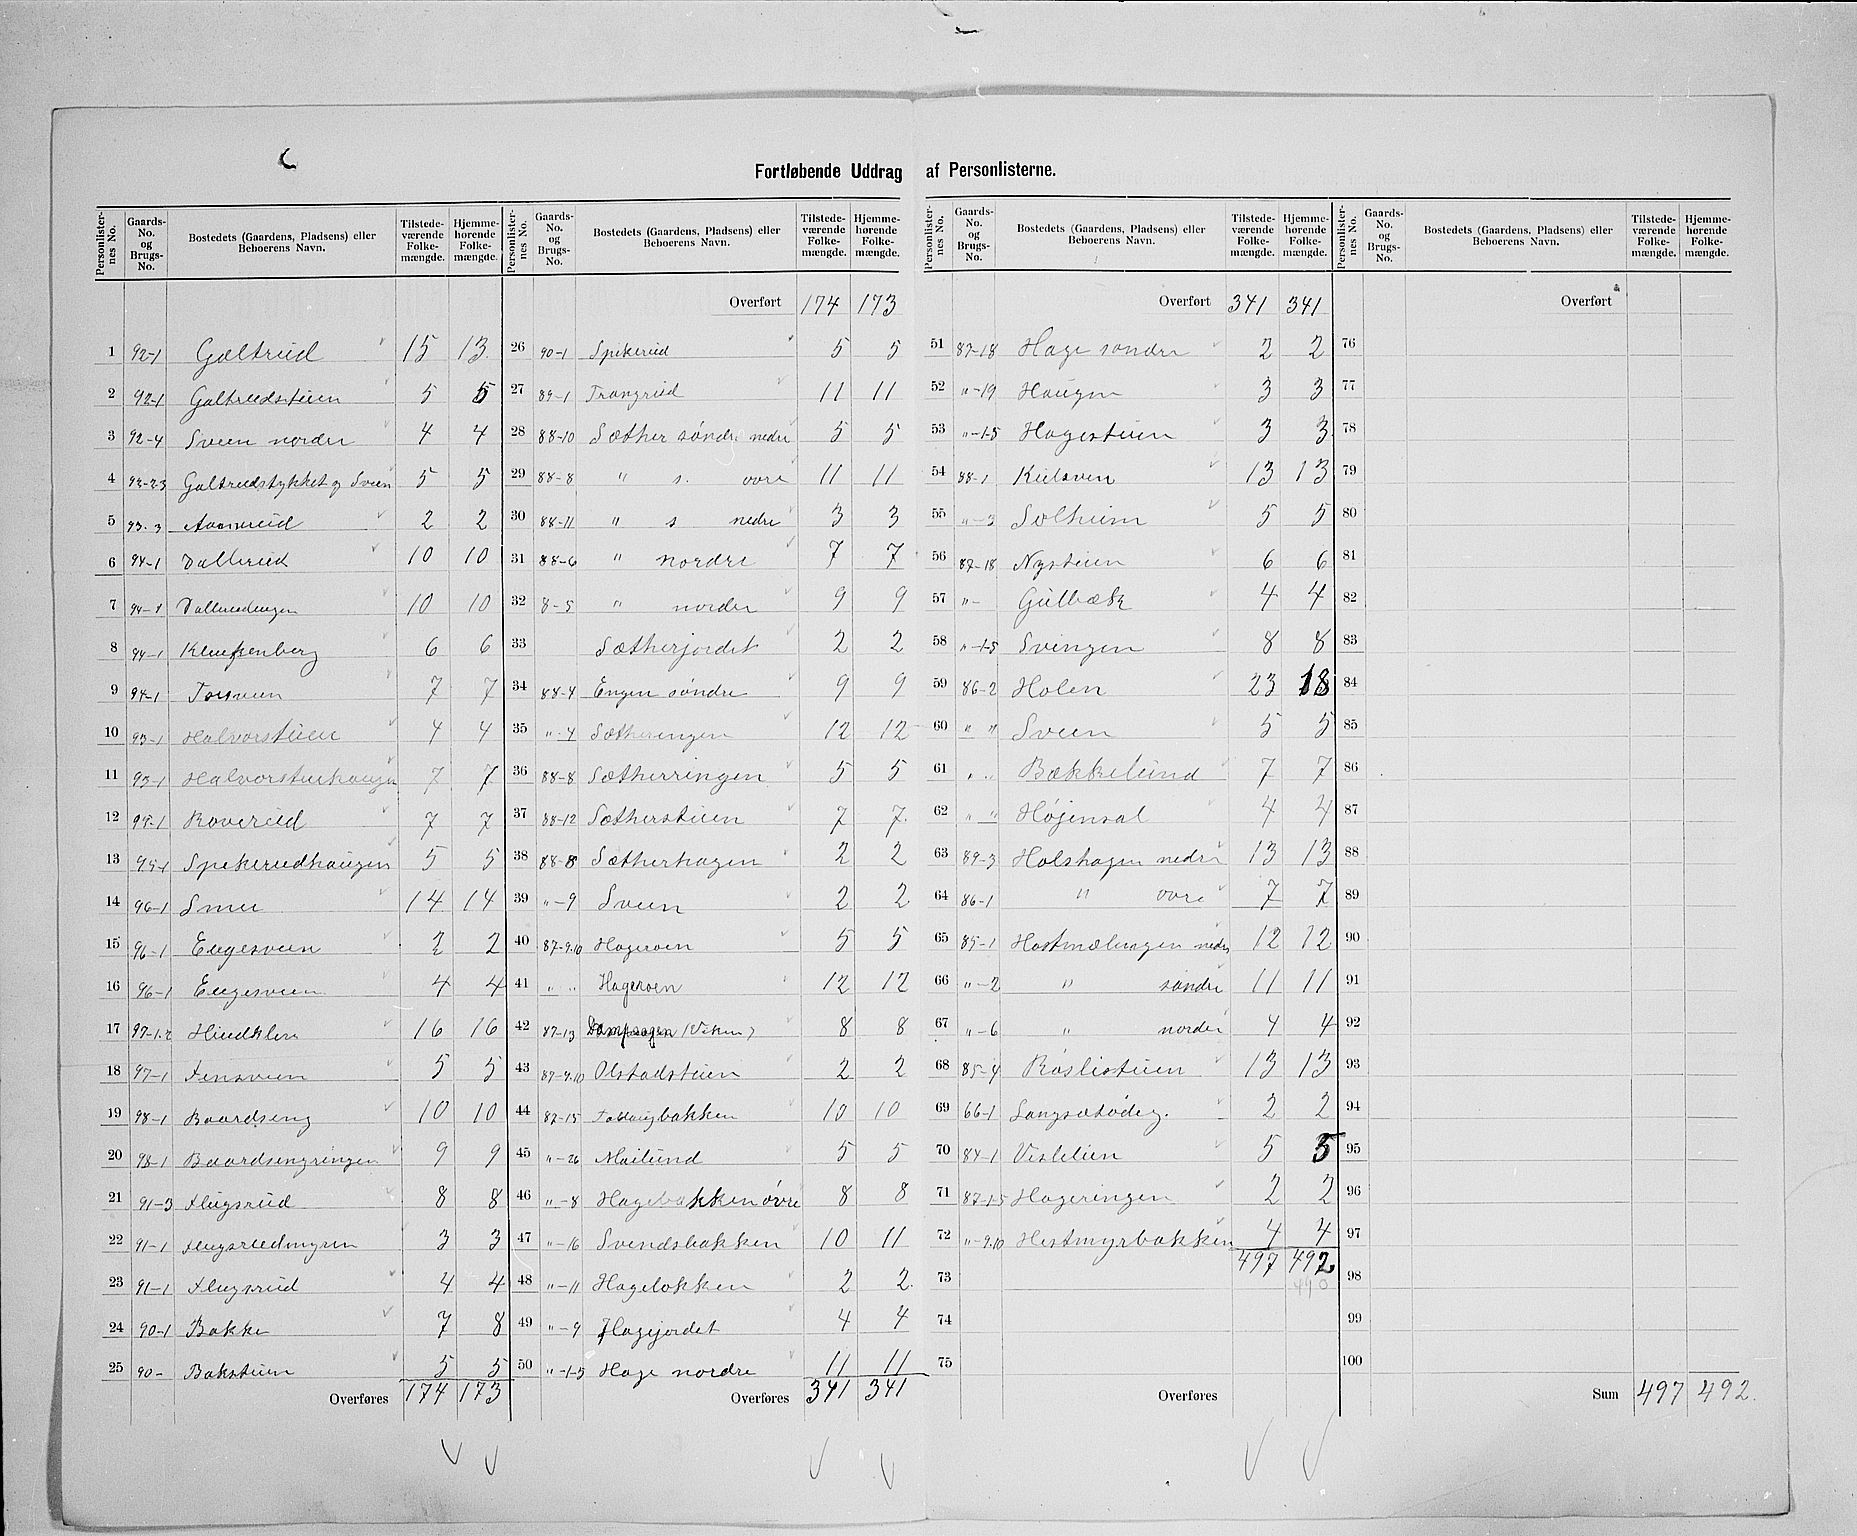 Fortløbende Uddrag af Personlisterne.
Personlister-nes No. | Gaards-No. og Brugs-No. | Bostedets (Gaardens, Pladsens) eller Beboerens Navn. | Tilstede-værende Folke-mængde. | Hjemme-hørende Folke-mængde.
1 92-1 Galtrud 15 13
2 92-1 Galtrudstuen 5 5
3 92-4 Sveen nordre 4 4
4 92-2.3 Galtrudstykket og Sveen 5 5
5 93-3 2 2
6 94-1 Dallerud 10 10
7 94-1 Dallerudengen 10 10
8 94-1 6 6
9 94-1 Torsveen 7 7
10 93-1 Halvorstuen 4 4
11 93-1 Halvorstuehaugen 7 7
12 95-1 Roverud 7 7
13 95-1 Spikerudhaugen 5 5
14 96-1 14 14
15 96-1 2 2
16 96-1 4 4
17 97-1.2 16 16
18 97-1 5 5
19 98-1 Baardseng 10 10
20 98-1 Baardsengringen 9 9
21 91-3 Flugsrud 8 8
22 91-1 3 3
23 91-1 Flugsrud 4 4
24 90-1 Bakke 7 8
25 90- Bakstuen 5 5
Overføres 174 173
Personlister-nes No. | Gaards-No. og Brugs-No. | Bostedets (Gaardens, Pladsens) eller Beboerens Navn. | Tilstede-værende Folke-mængde. | Hjemme-hørende Folke-mængde.
Overført 174 173
26 90-1 Spikerud 5 5
27 89-1 Trangrud 11 11
28 88-10 Sæther søndre nedre 5 5
29 88-8 " s. øvre 11 11
30 88-11 " s nedre 3 3
31 88-6 " nordre 7 7
32 8-5 " nordre 9 9
33 Sætherjordet 2 2
34 88-4 Engen søndre 9 9
35 "-4 Sætherengen 12 12
36 88-8 Sætherringen 5 5
37 88-12 Sætherstuen 7 7
38 88-8 Sætherhagen 2 2
39 "-9 Sveen 2 2
40 87-9.10 Hageroen 5 5
41 " " Hageroen 12 12
42 87-13 Dampsagen (Viken) 8 8
43 87-9.10 Olstadstuen 2 2
44 87-15 10 10
45 "-26 Mailund 5 5
46 "-8 Hagebakken øvre 8 8
47 "-16 Svendsbakken 10 11
48 "-11 Hageløkken 2 2
49 "-9 Hagejordet 4 4
50 "-1-5 Hage nordre 11 11
Overføres 341 341
Personlister-nes No. | Gaards-No. og Brugs-No. | Bostedets (Gaardens, Pladsens) eller Beboerens Navn. | Tilstede-værende Folke-mængde. | Hjemme-hørende Folke-mængde.
Overført 341 341
51 87-18 Hage søndre 2 2
52 "-19 Haugen 3 3
53 "-1-5 Hagestuen 3 3
54 88-1 13 13
55 "-3 Solheim 5 5
56 87-18 Nystuen 6 6
57 "- Gulbæk 4 4
58 "-1-5 Svingen 8 8
59 86-2 Holen 23 18
60 " " Sveen 5 5
61 " " Bækkelund 7 7
62 " " Højensal 4 4
63 89-3 Holshagen nedre 13 13
64 86-1 " øvre 7 7
65 85-1 Hestmælhagen nedre 12 12
66 "-2 " søndre 11 11
67 "-6 " nordre 4 4
68 85-4 Røslistuen 13 13
69 66-1 2 2
70 84-1 Vislelien 5 5
71 87-1-5 Hageringen 2 2
72 "-9.10 Hestmyrbakken 4 4
497 492
490
73
74
75
Overføres
Personlister-nes No. | Gaards-No. og Brugs-No. | Bostedets (Gaardens, Pladsens) eller Beboerens Navn. | Tilstede-værende Folke-mængde. | Hjemme-hørende Folke-mængde.
Overført
76
77
78
79
80
81
82
83
84
85
86
87
88
89
90
91
92
93
94
95
96
97
98
99
100
Sum 497 492.